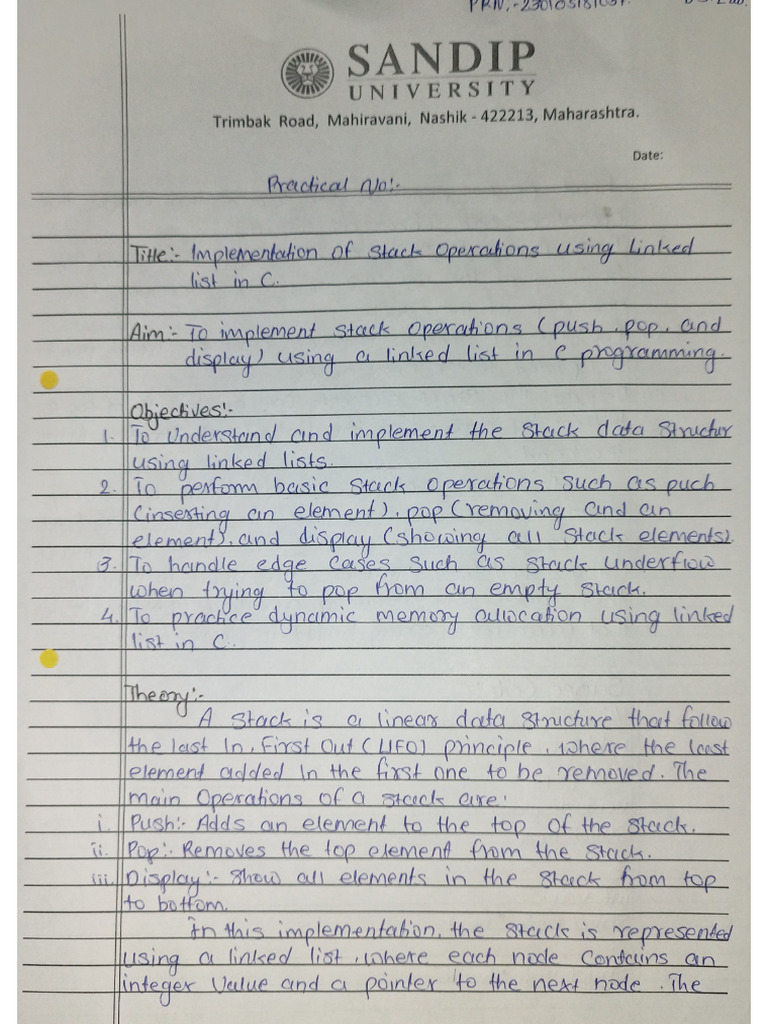 SANDIP
UNIVERSITY
Trimbak Road, Mahiravani, Nashik - 422213, Maharashtra.
Date:
Practical No:-
Title:- Implementation of Stack Operations using linked
list in C.
Aim:- To implement stack operations (push, pop, and
display) using a linked list in C programming.
Objectives:-
1. To Understand and implement the Stack data Structur
using linked lists.
2. To perform basic Stack Operations such as puch
(inserting an element), pop (removing and an
element), and display (showing all Stack elements).
3. To handle edge cases such as Stack underflow
when trying to pop from an empty stack.
4. To practice dynamic memory allocation using linked
list in C.
Theory:-
A stack is a linear data structure that follow
the last In, First Out (LIFO) principle, where the last
element added in the first one to be removed. The
main Operations of a stack are:
i. Push:- Adds an element to the top of the stack.
ii. Pop:- Removes the top element from the stack.
iii. Display:- Show all elements in the stack from top
to bottom.
In this implementation, the stack is represented
using a linked list, where each node contains an
integer value and a pointer to the next node. The